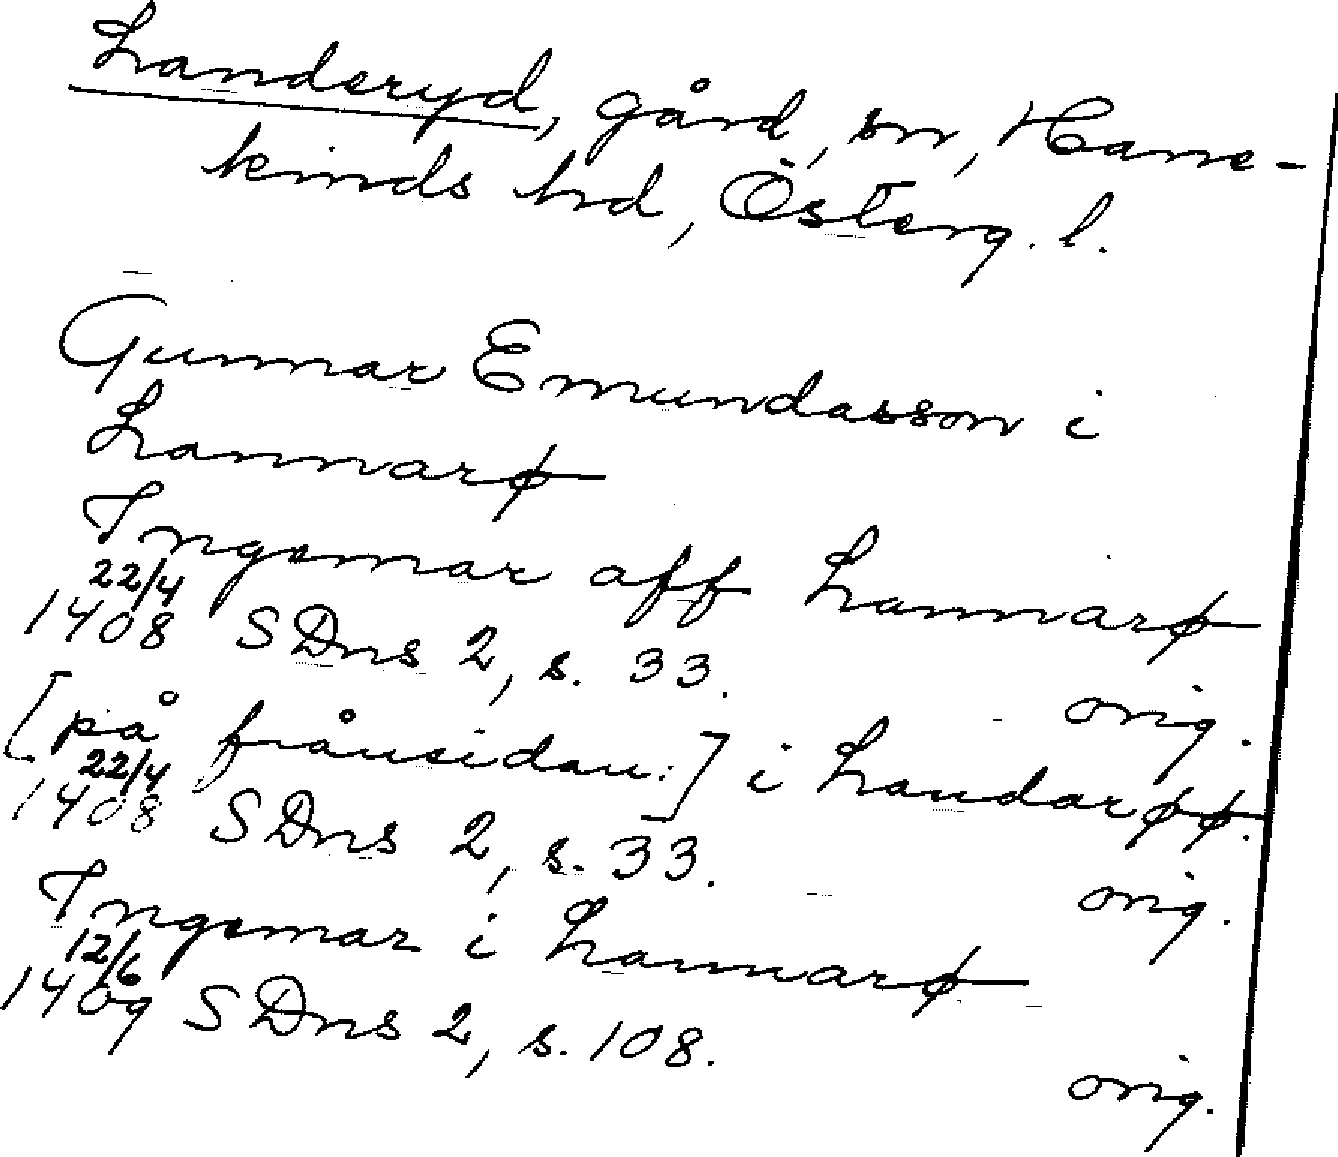 Landeryd, gård, sn, Hane-
kinds hd, Österg. l.
Gunnar Emundasson i
Lannarp
Ingemar aff Lannarp
22/4
1408 SDns 2, s. 33. orig.
[på frånsidan:] i Landarpp.
22/4
1408 SDns 2, s. 33. orig.
Ingemar i Lannarp
12/6
1409 SDns 2, s. 108.
orig.